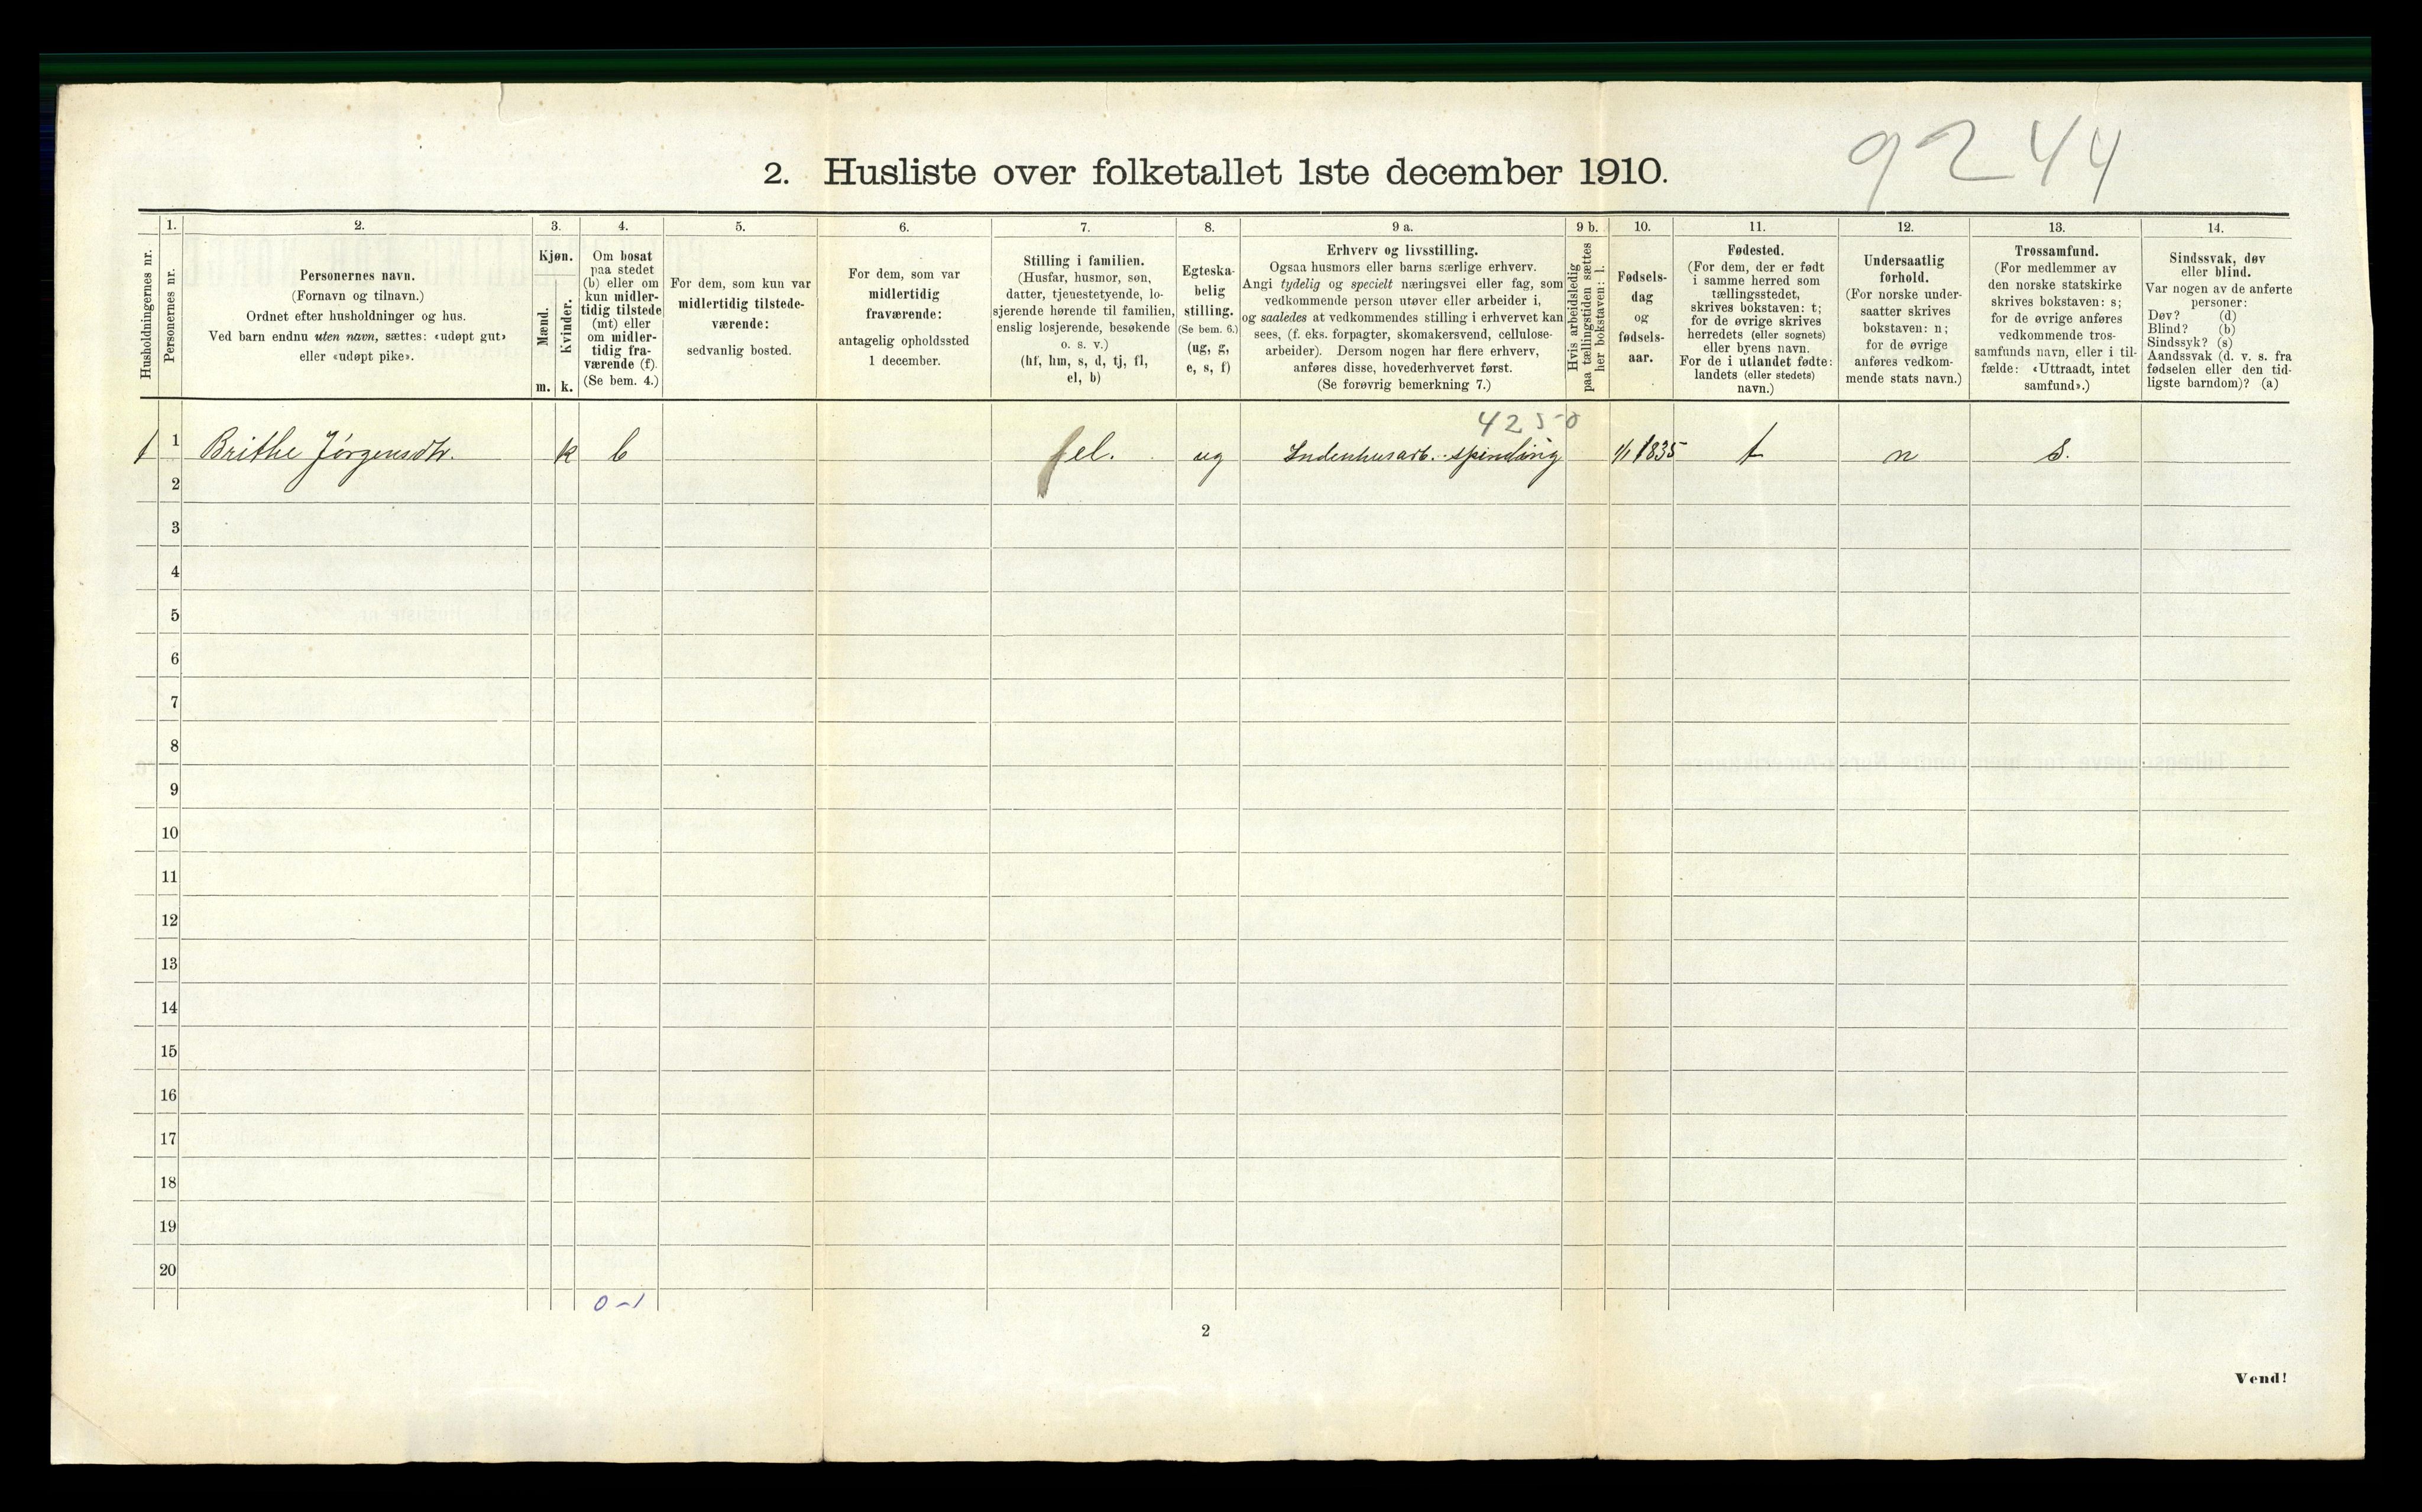 9244
2. Husliste over folketallet 1ste december 1910.
1. 2. 3. 4. 5. 6. 7. 8. 9 a. 9 b. 10. 11. 12. 13. 14.
Husholdningernes nr.
Personernes nr.
Personernes navn.
(Fornavn og tilnavn.)
Ordnet efter husholdninger og hus.
Ved barn endnu uten navn, sættes: «udøpt gut»
eller «udøpt pike».
Kjøn.
Mænd.
Kvinder.
m. k.
Om bosat
paa stedet
(b) eller om
kun midler-
tidig tilstede
(mt) eller
om midler-
tidig fra-
værende (f).
(Se bem. 4.)
For dem, som kun var
midlertidig tilstede-
værende:
sedvanlig bosted.
For dem, som var
midlertidig
fraværende:
antagelig opholdssted
1 december.
Stilling i familien.
(Husfar, husmor, søn,
datter, tjenestetyende, lo-
sjerende hørende til familien,
enslig losjerende, besøkende
o. s. v.)
(hf, hm, s, d, tj, fl,
el, b)
Egteska-
belig
stilling.
(Se bem. 6.)
(ug, g,
e, s, f)
Erhverv og livsstilling.
Ogsaa husmors eller barns særlige erhverv.
Angi tydelig og specielt næringsvei eller fag, som
vedkommende person utøver eller arbeider i,
og saaledes at vedkommendes stilling i erhvervet kan
sees, (f. eks. forpagter, skomakersvend, cellulose-
arbeider). Dersom nogen har flere erhverv,
anføres disse, hovederhvervet først.
(Se forøvrig bemerkning 7.)
Hvis arbeidsledig
paa tællingstiden sættes
her bokstaven: l.
Fødsels-
dag
og
fødsels-
aar.
Fødested.
(For dem, der er født
i samme herred som
tællingsstedet,
skrives bokstaven: t;
for de øvrige skrives
herredets (eller sognets)
eller byens navn.
For de i utlandet fødte:
landets (eller stedets)
navn.)
Undersaatlig
forhold.
(For norske under-
saatter skrives
bokstaven: n;
for de øvrige
anføres vedkom-
mende stats navn.)
Trossamfund.
(For medlemmer av
den norske statskirke
skrives bokstaven: s;
for de øvrige anføres
vedkommende tros-
samfunds navn, eller i til-
fælde: «Uttraadt, intet
samfund».)
Sindssvak, døv
eller blind.
Var nogen av de anførte
personer:
Døv? (d)
Blind? (b)
Sindssyk? (s)
Aandssvak (d. v. s. fra
fødselen eller den tid-
ligste barndom)? (a)
4250
1 1 Brithe Jørgensdtr. k b el. ug Indenhusarb. spinding 1/1 1835 t n s.
2
3
4
5
6
7
8
9
10
11
12
13
14
15
16
17
18
19
20
0-1
2
Vend!